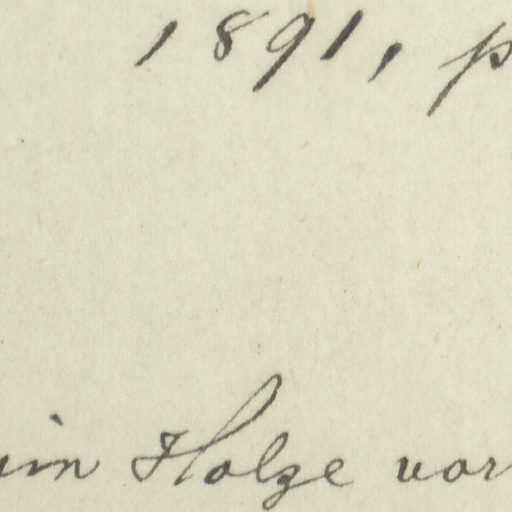 , 1891, p
im Holze vor